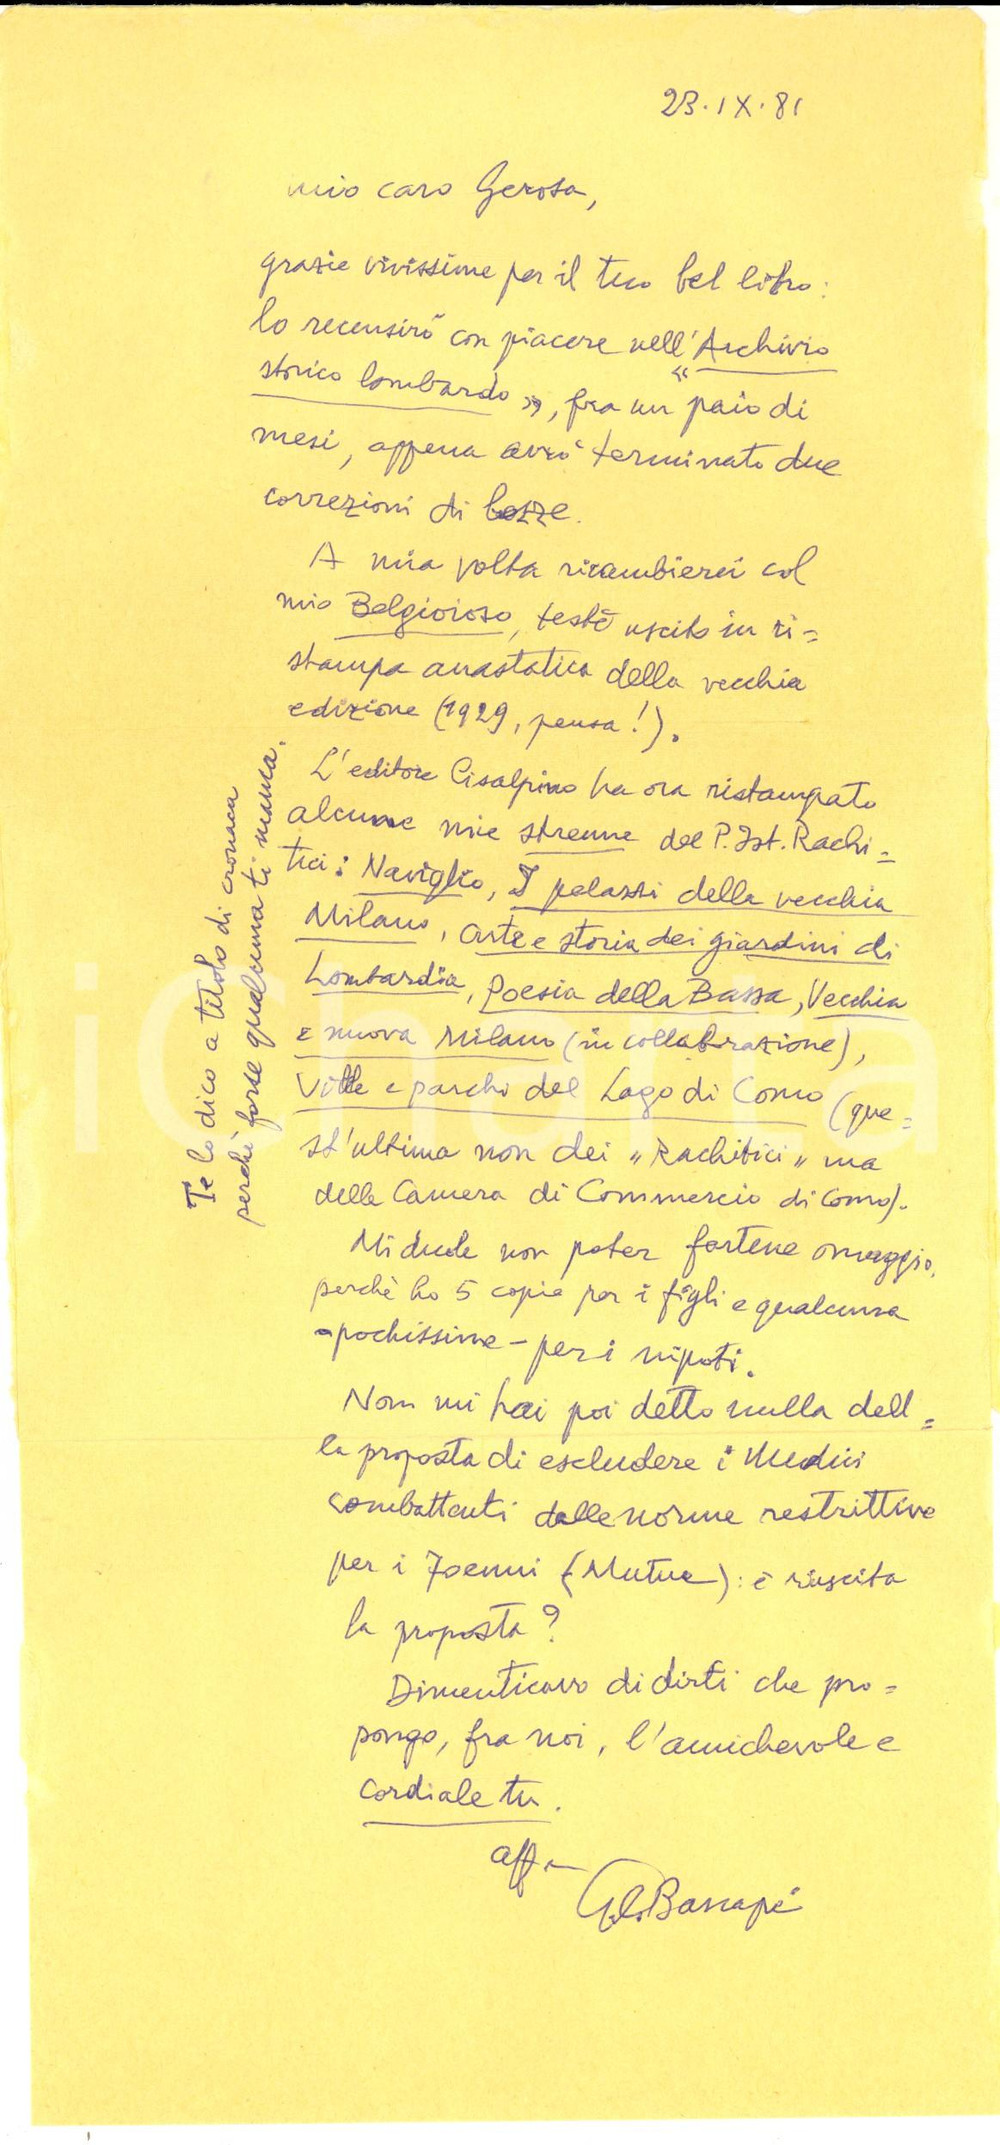 23.IX.81
mio caro Gerosa,
grazie vivissime per il tuo bel libro:
lo recensirò con piacere nell'"Archivio
storico lombardo", fra un paio di
mesi, appena avrò terminato due
correzioni di bozze.
A mia volta ricambierei col
mio Belgioioso, testè uscito in ri=
stampa anastatica della vecchia
edizione (1929, pensa!).
L'editore Cisalpino ha ora ristampato
alcune mie strenne del P. Ist. Rachi=
tici: Naviglio, I palazzi della vecchia
Milano, Arte e storia dei giardini di
Lombardia, Poesia della Bassa, Vecchia
e nuova Milano (in collabrazione),
Ville e parchi del Lago di Como (que=
st'ultima non dei "Rachitici" ma
della Camera di Commercio di Como).
Mi duole non poter fartene omaggio,
perchè ho 5 copie per i figli e qualcuna
-pochissime- per i nipoti.
Non mi hai poi detto nulla dell=
la proposta di escludere i Medici
combattenti dalle norme restrittive
per i 70enni (Mutue): è riuscita
la proposta?
Dimenticavo di dirti che pro=
pongo, fra noi, l'amichevole e
cordiale tu.
aff
G.C. Bascapè
Te lo dico a titolo di cronaca
perchè forse qualcuna ti manca.
iCharta